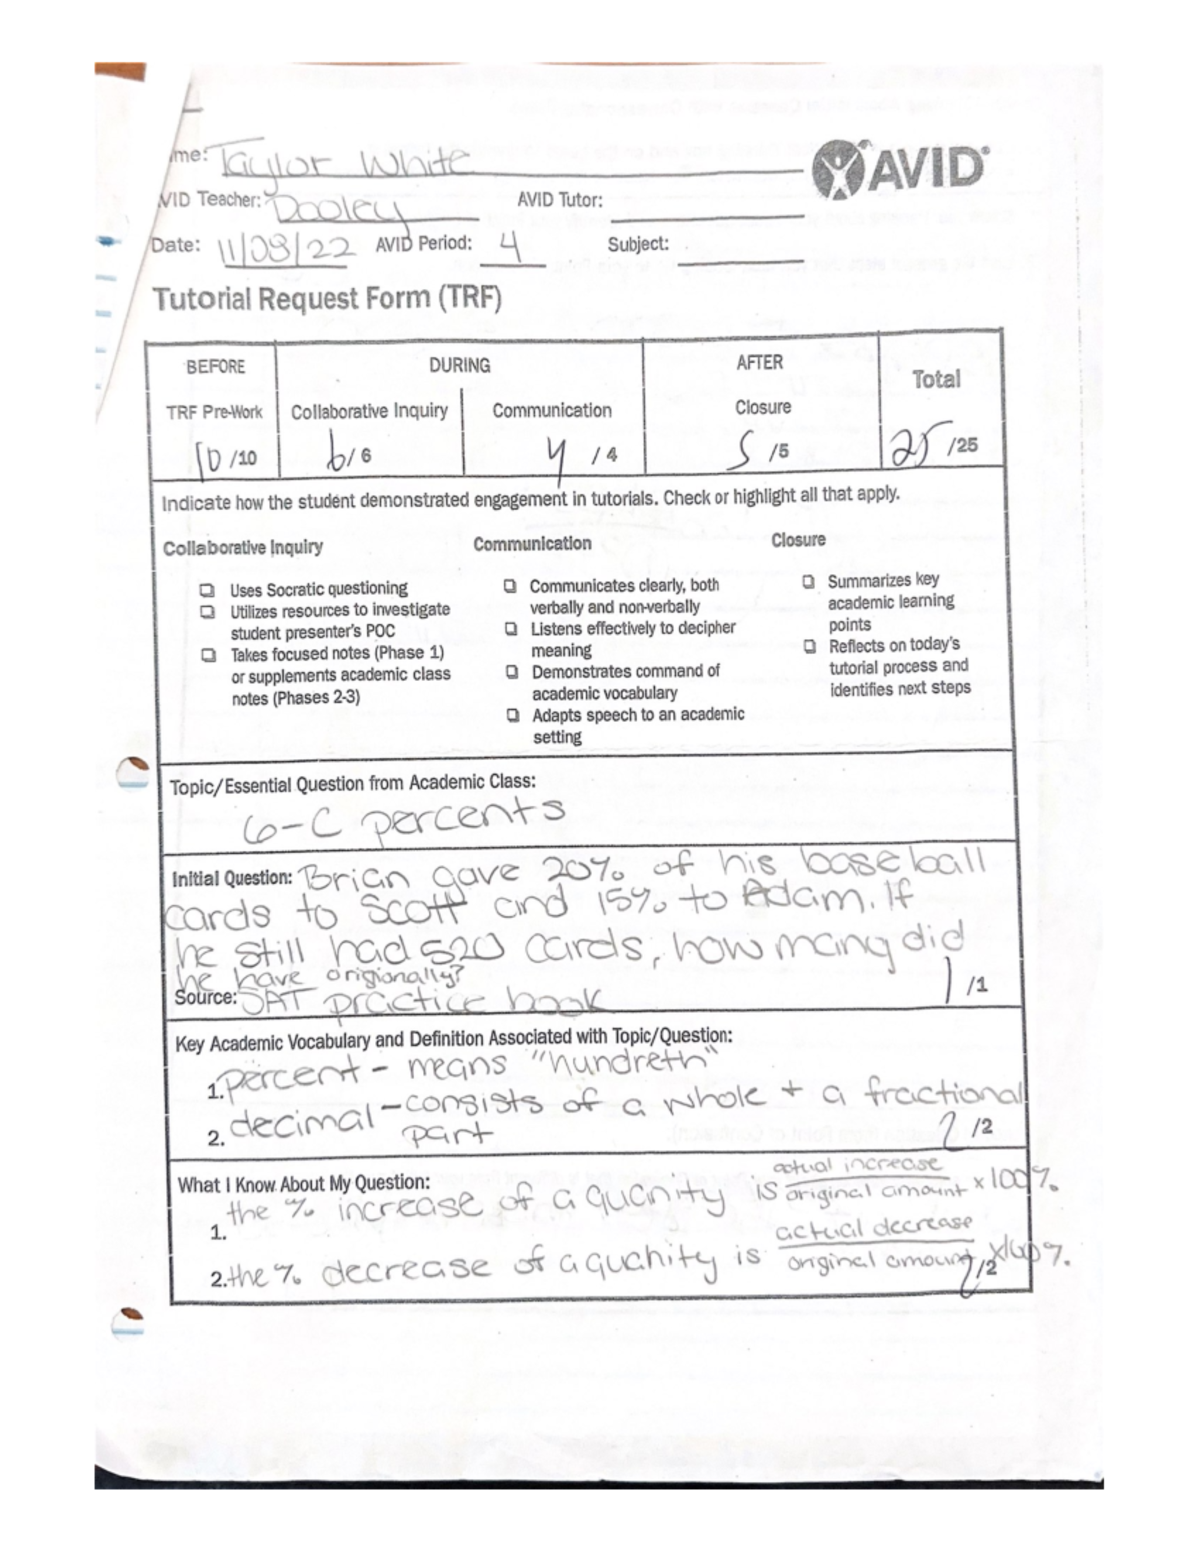 me: Taylor White
AVID
VID Teacher: Dooley AVID Tutor:
Date: 11/03/22 AVID Period: 4 Subject:
Tutorial Request Form (TRF)
BEFORE DURING AFTER Total
TRF Pre-Work Collaborative Inquiry Communication Closure
10 /10 6 / 6 4 / 4 5 /5 25 /25
Indicate how the student demonstrated engagement in tutorials. Check or highlight all that apply.
Collaborative Inquiry
Uses Socratic questioning
Utilizes resources to investigate
student presenter's POC
Takes focused notes (Phase 1)
or supplements academic class
notes (Phases 2-3)
Communication
Communicates clearly, both
verbally and non-verbally
Listens effectively to decipher
meaning
Demonstrates command of
academic vocabulary
Adapts speech to an academic
setting
Closure
Summarizes key
academic learning
points
Reflects on today's
tutorial process and
identifies next steps
Topic/Essential Question from Academic Class:
6-C percents
Initial Question: Brian gave 20% of his baseball
cards to Scott and 15% to Adam. If
he still had 520 cards, how many did
he have origionally?
Source: SAT practice book 1 /1
Key Academic Vocabulary and Definition Associated with Topic/Question:
1. percent - means "hundreth"
2. decimal - consists of a whole + a fractional
part 2 /2
What I Know About My Question:
1. the % increase of a quanity is actual increase / original amount x 100%.
2. the % decrease of a quanity is actual decrease / original amount x100%.
2 /2